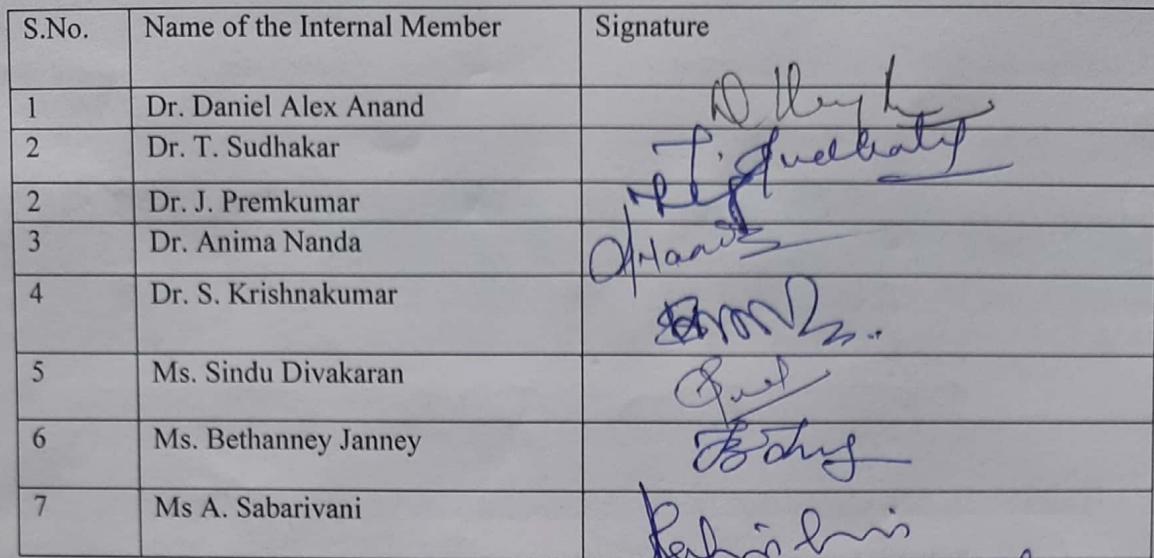 S.No. Name of the Internal Member Signature
1 Dr. Daniel Alex Anand
2 Dr. T. Sudhakar
2 Dr. J. Premkumar
3 Dr. Anima Nanda
4 Dr. S. Krishnakumar
5 Ms. Sindu Divakaran
6 Ms. Bethanney Janney
7 Ms A. Sabarivani